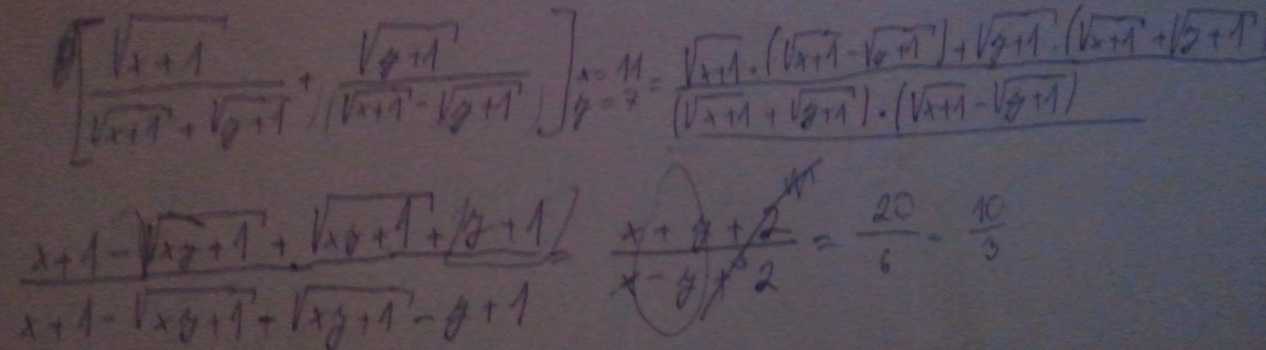 [√(x+1) / (√(x+1) + √(y+1)) + √(y+1) / (√(x+1) - √(y+1))] x=11 y=7 = (√(x+1) · (√(x+1) - √(y+1)) + √(y+1) · (√(x+1) + √(y+1))) / ((√(x+1) + √(y+1)) · (√(x+1) - √(y+1)))
(x+1 - √(xy+1) + √(xy+1) + (y+1)) / (x+1 - √(xy+1) + √(xy+1) - y+1) = (x + y + 2) / (x - y + 2) = 20/6 = 10/3